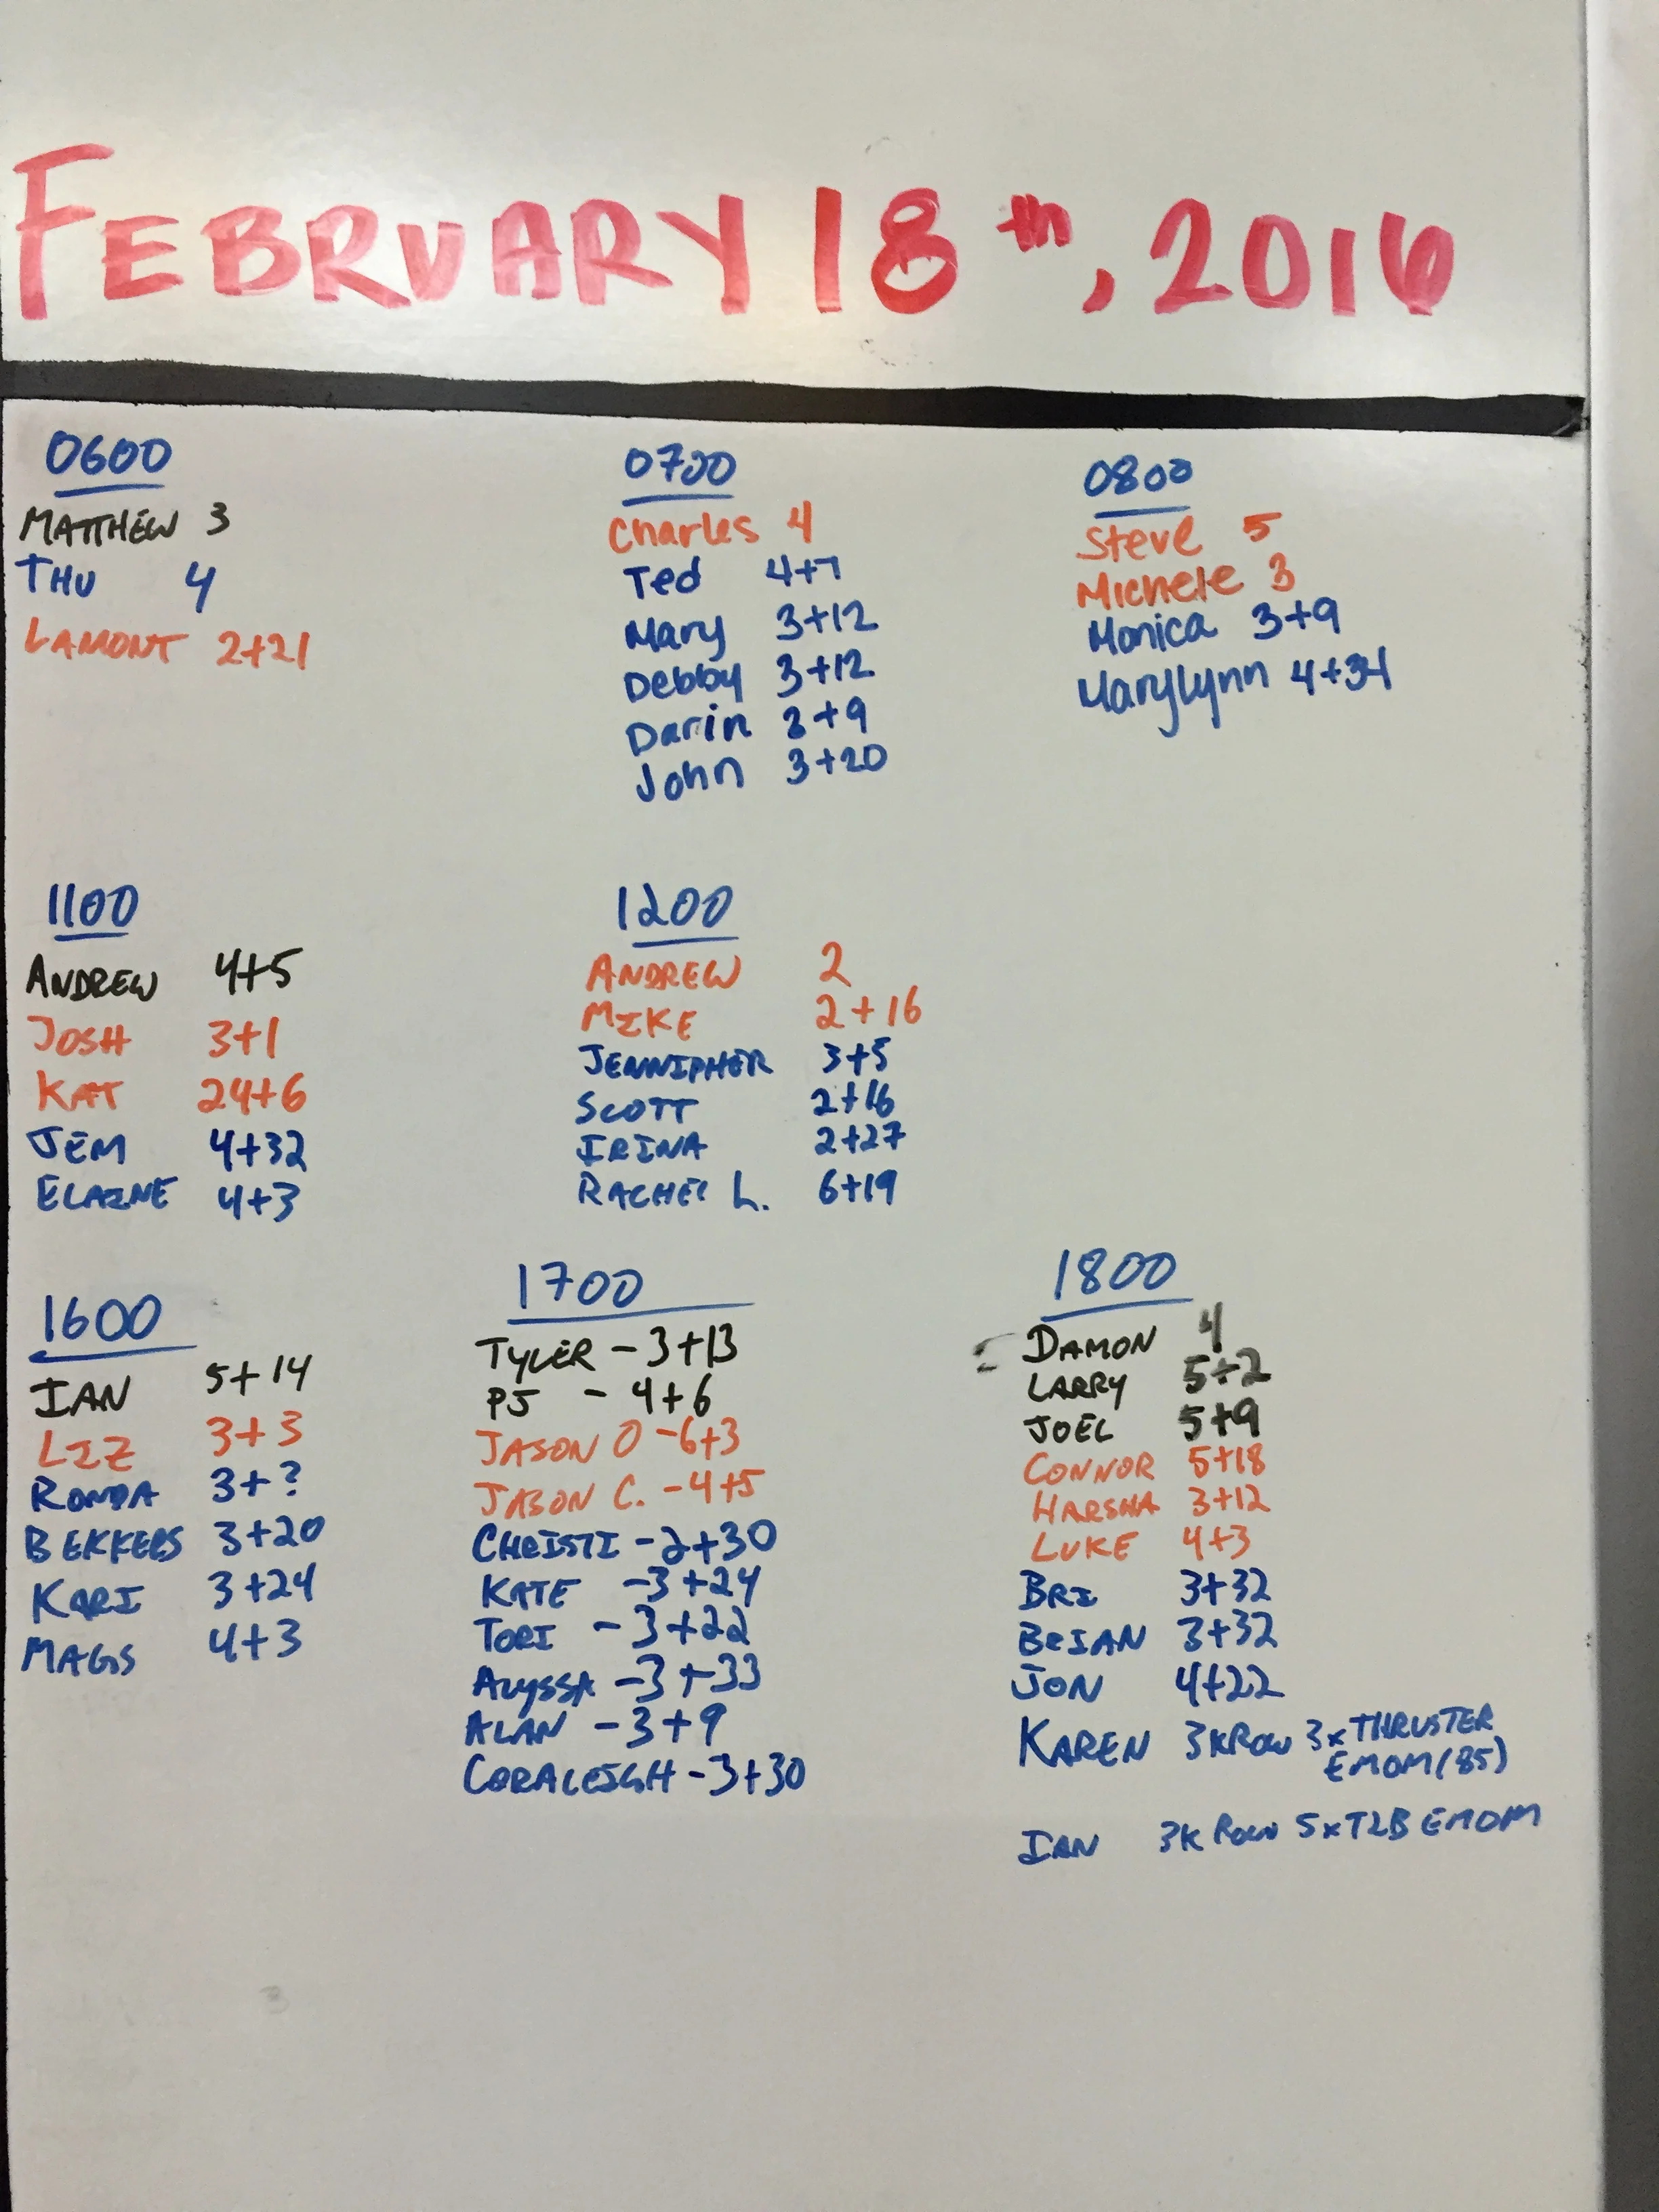 FEBRUARY 18th, 2016
0600
MATTHEW 3
THU 4
LAMONT 2+21
0700
Charles 4
Ted 4+7
Mary 3+12
Debby 3+12
Darin 3+9
John 3+20
0800
Steve 5
Michele 3
Monica 3+9
Marylynn 4+34
1100
ANDREW 4+5
JOSH 3+1
KAT 24+6
JEM 4+32
ELAINE 4+3
1200
ANDREW 2
MIKE 2+16
JENNIPHER 3+5
SCOTT 2+16
IRINA 2+27
RACHEL L. 6+19
1600
IAN 5+14
LIZ 3+3
RONDA 3+?
BEKKERS 3+20
KARI 3+24
MAGS 4+3
1700
TYLER - 3+13
PJ - 4+6
JASON O - 6+3
JASON C. - 4+5
CHRISTI - 2+30
KATE - 3+24
TORI - 3+22
ALYSSA - 3+33
ALAN - 3+9
CORALEIGH - 3+30
1800
DAMON 4
LARRY 5+2
JOEL 5+9
CONNOR 5+18
HARSHA 3+12
LUKE 4+3
BRI 3+32
BRIAN 3+32
JON 4+22
KAREN 3K ROW 3xTHRUSTER
EMOM (85)
IAN 3K Row 5xT2B EMOM